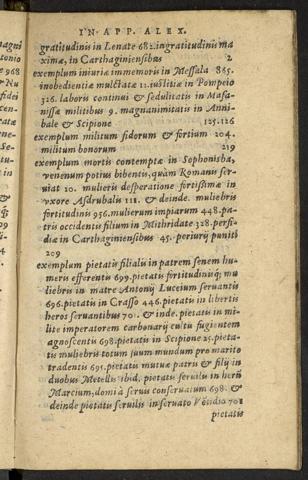 IN APP. ALEX.
gratitudinis in Lenate 682. ingratitudinis ma
ximæ, in Carthaginiensibus 2
exemplum iniuriæ immemoris in Messala 865.
inobedientiæ mulctatæ 12. iustitiæ in Pompeio
326. laboris continui & sedulitatis in Masa-
nissa militibus 9. magnanimitatis in Anni-
bale & Scipione 125.126
exemplum militum fidorum & fortium 204.
militum bonorum 219
exemplum mortis contemptæ in Sophonisba,
venenum potius bibentis, quàm Romanis ser-
uiat 20. mulieris desperatione fortissimæ in
vxore Asdrubalis 111. & deinde. muliebris
fortitudinis 956. mulierum impiarum 448. pa-
tris occidentis filium in Mithridate 328. perfi-
diæ in Carthaginiensibus 45. periurij puniti
209
exemplum pietatis filialis in patrem senem hu-
meris efferentis 699. pietatis fortitudinisq; mu
liebris in matre Antonij Lucium seruantis
696. pietatis in Crasso 446. pietatis in libertis
heros seruantibus 701. & inde. pietatis in mi-
lite imperatorem carbonarij cultu fugientem
agnoscentis 698. pietatis in Scipione 25. pieta-
tis muliebris totum suum mundum pro marito
tradentis 691. pietatis mutuæ patris & filij in
duobus Metellis ibid. pietatis seruilis in herū
Marcium, domi à seruis conseruatum 698. &
deinde pietatis seruilis in seruato Vētidio 701
pietatis